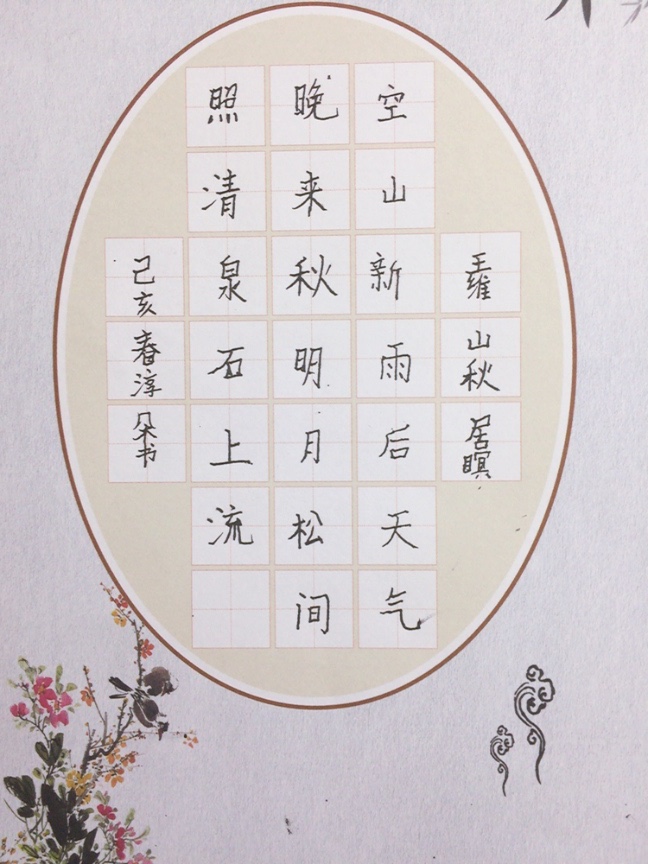 王維山秋居暝
空山新雨后天气
晚来秋明月松间
照清泉石上流
己亥春淳朵书